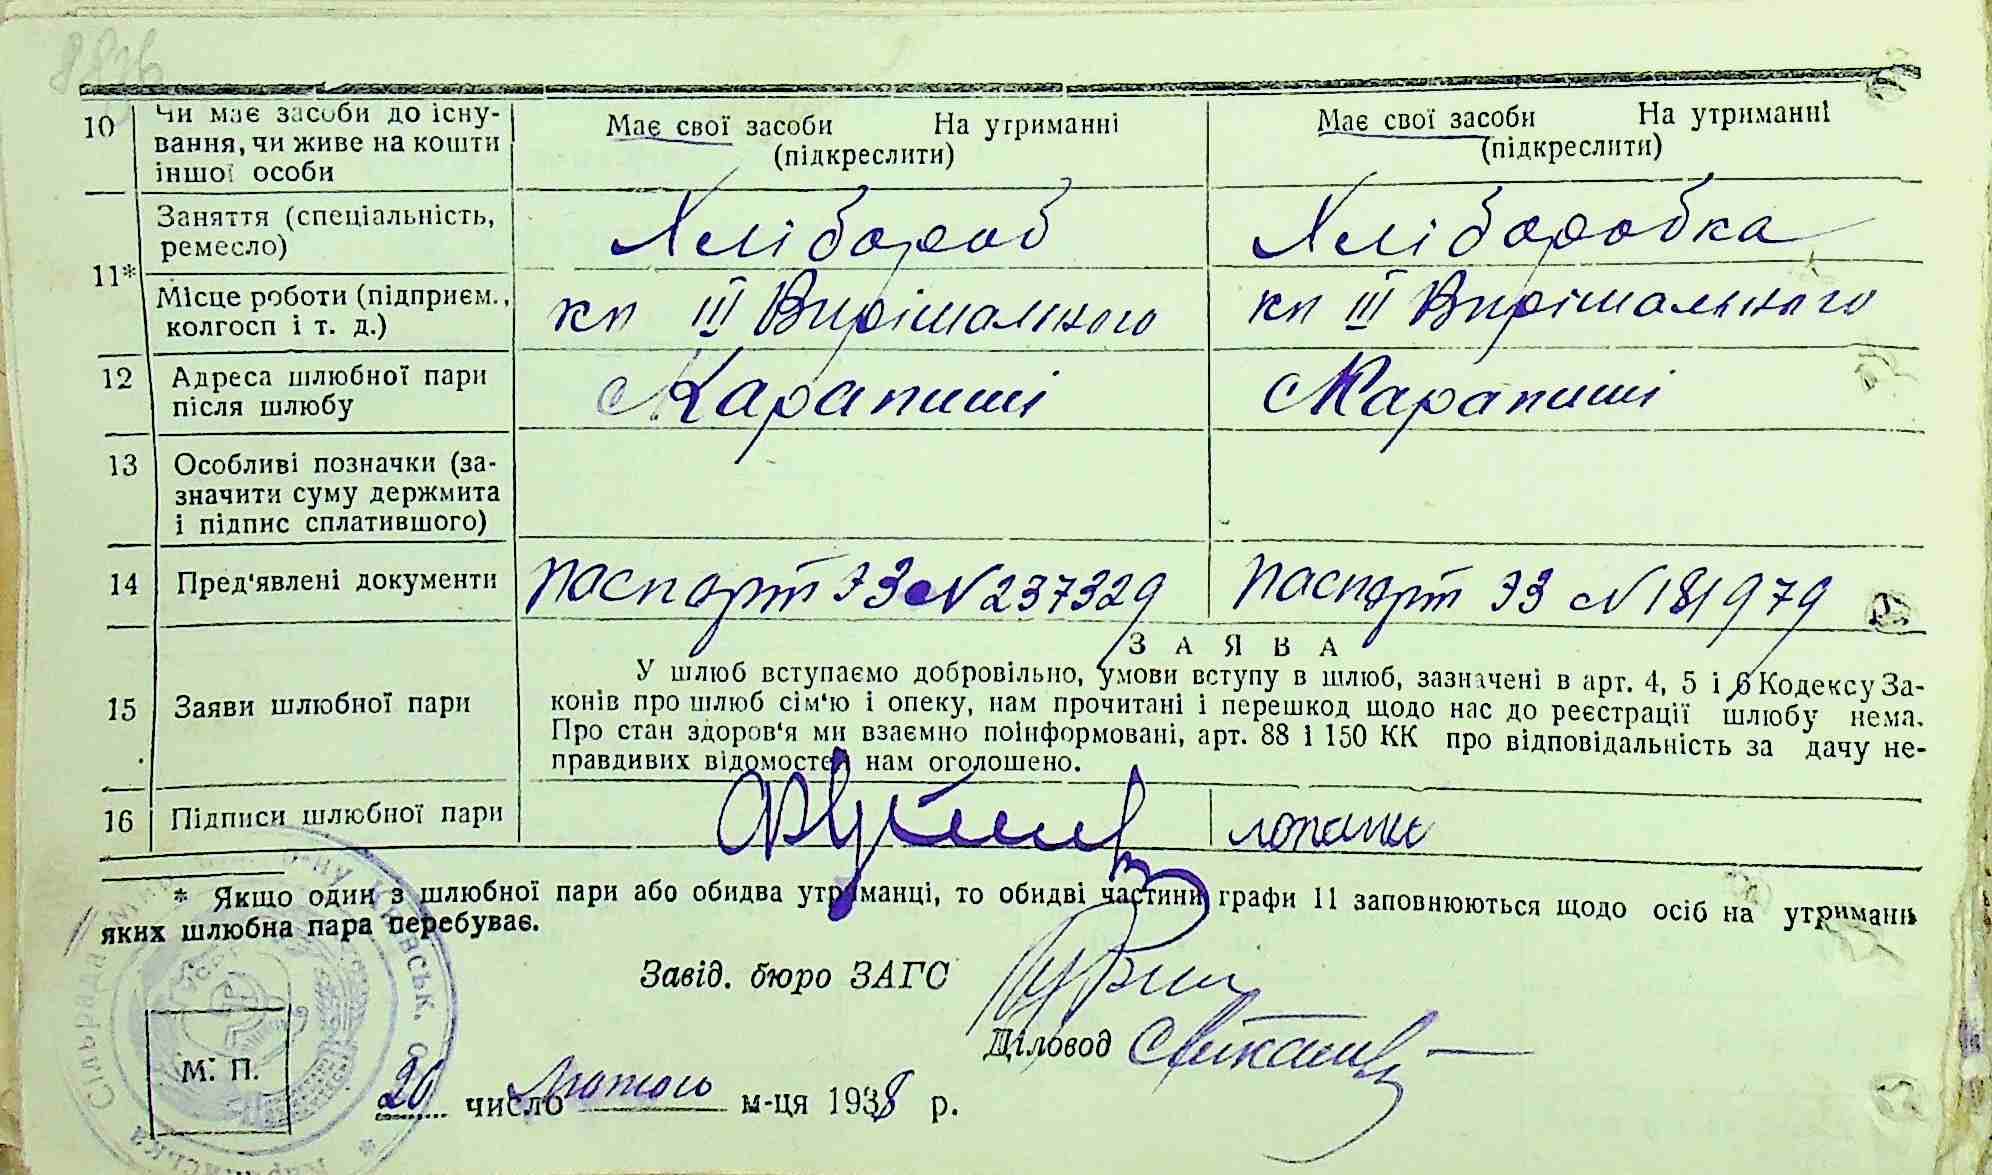 10 Чи має засоби до існу-
вання, чи живе на кошти
іншої особи
Має свої засоби На утриманні
(підкреслити)
Має свої засоби На утриманні
(підкреслити)
11*
Заняття (спеціальність,
ремесло)
Хлібороб
Хліборобка
Місце роботи (підприєм.,
колгосп і т. д.)
кп ІІІ Вирішального
кп ІІІ Вирішального
12 Адреса шлюбної пари
після шлюбу
с Карапиші
с Карапиші
13 Особливі позначки (за-
значити суму держмита
і підпис сплатившого)
14 Пред'явлені документи
Паспорт ЭЗ № 237329
Паспорт ЭЗ № 181979
ЗАЯВА
15 Заяви шлюбної пари
У шлюб вступаємо добровільно, умови вступу в шлюб, зазначені в арт. 4, 5 і 6 Кодексу За-
конів про шлюб сім'ю і опеку, нам прочитані і перешкод щодо нас до реєстрації шлюбу нема.
Про стан здоров'я ми взаємно поінформовані, арт. 88 і 150 КК про відповідальність за дачу не-
правдивих відомостей нам оголошено.
16 Підписи шлюбної пари
* Якщо один з шлюбної пари або обидва утриманці, то обидві частини графи 11 заповнюються щодо осіб на утриманн
яких шлюбна пара перебуває.
Завід. бюро ЗАГС
Діловод
М. П.
20 число лютого м-ця 1938 р.